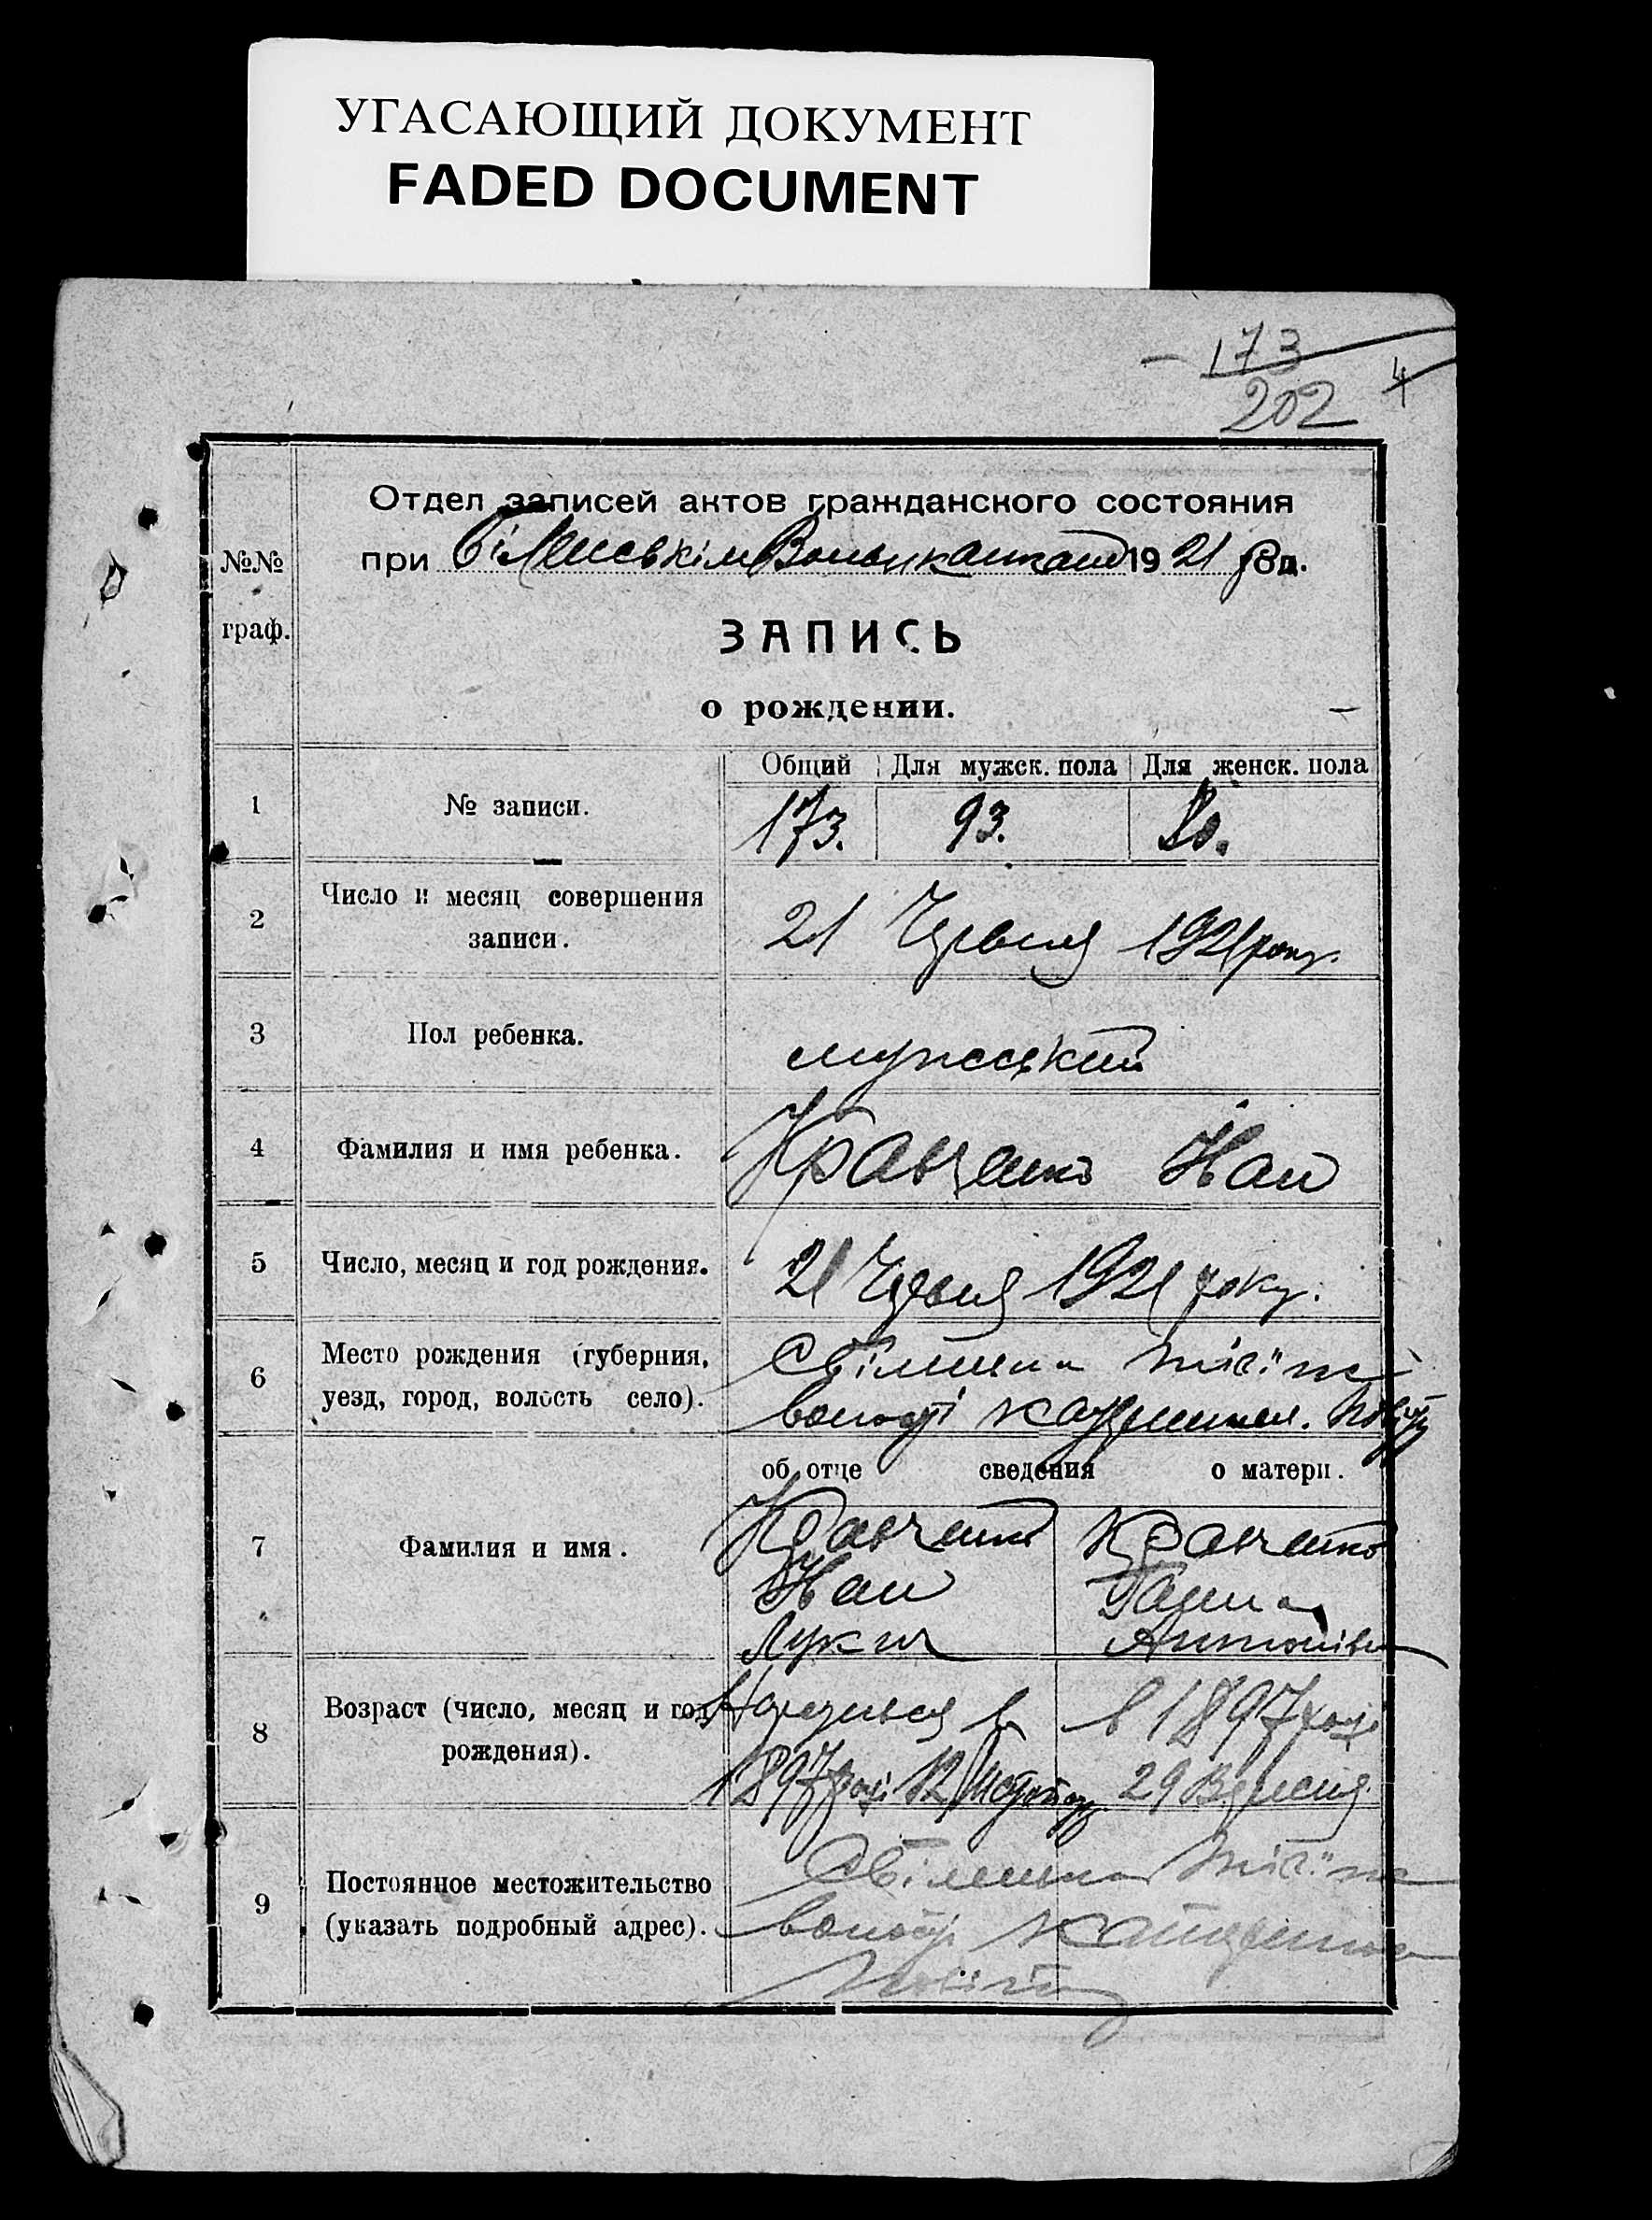 УГАСАЮЩИЙ ДОКУМЕНТ
FADED DOCUMENT
173
202
4
Отдел записей актов гражданского состояния
при 1921 год.
№№
граф.
ЗАПИСЬ
о рождении.
Общий Для мужск. пола Для женск. пола
1 № записи. 173. 93. 80.
2 Число и месяц совершения
записи.
21 Червня 1921 року.
3 Пол ребенка. мужеський
4 Фамилия и имя ребенка. Кравченко Иван
5 Число, месяц и год рождения. 21 Червня 1921 року.
6 Место рождения (губерния,
уезд, город, волость село).
волості
об отце сведения о матери.
7 Фамилия и имя.
Кравченко Кравченко
Иван Ганна
Лукич Антонівна
8 Возраст (число, месяц и год
рождения).
в в 1897 році
1897 році 12 29 Вересня
9 Постоянное местожительство
(указать подробный адрес).
волості
повіту